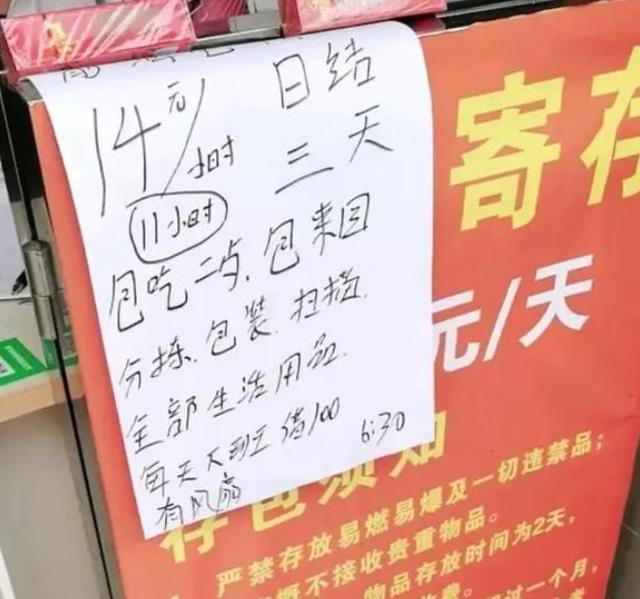 14元/小时
日结
三天
11小时
包吃二歺、包来回
分拣、包装、扫描
全部生活用品
每天大班车 借100 6:30
有风扇
寄存
元/天
存包须知
严禁存放易燃易爆及一切违禁品;
概不接收贵重物品。
物品存放时间为2天,
过一个月,